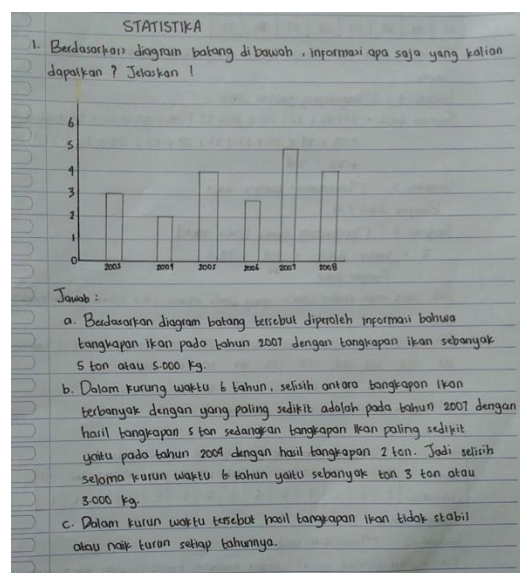 STATISTIKA
1. Berdasarkan diagram batang di bawah, informasi apa saja yang kalian
dapatkan ? Jelaskan !
6
5
4
3
2
1
0
2003 2004 2005 2006 2007 2008
Jawab :
a. Berdasarkan diagram batang tersebut diperoleh informasi bahwa
tangkapan ikan pada tahun 2007 dengan tangkapan ikan sebanyak
5 ton atau 5.000 kg.
b. Dalam kurung waktu 6 tahun, selisih antara tangkapan ikan
terbanyak dengan yang paling sedikit adalah pada tahun 2007 dengan
hasil tangkapan 5 ton sedangkan tangkapan ikan paling sedikit
yaitu pada tahun 2004 dengan hasil tangkapan 2 ton. Jadi selisih
selama kurun waktu 6 tahun yaitu sebanyak ton 3 ton atau
3.000 kg.
c. Dalam kurun waktu tersebut hasil tangkapan ikan tidak stabil
atau naik turun setiap tahunnya.